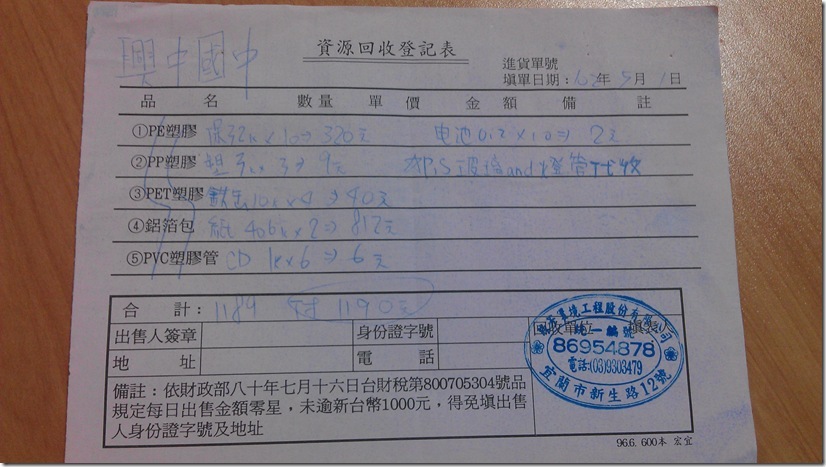 興中國中
資源回收登記表
進貨單號
填單日期：102年5月1日
品 名 數量 單價 金額 備註
①PE塑膠 保32K×10⇒320元 电池0.2×10⇒2元
②PP塑膠 塑3K×3⇒9元
③PET塑膠 鉄缶10K×4⇒40元
④鋁箔包 紙406K×2⇒812元
⑤PVC塑膠管 CD 1K×6⇒6元
合計： 1189 付1190元
出售人簽章 身份證字號 回收單位 填表人
地址 電話
股份有限公司
統一編號
86954878
電話：(03)9303479
宜蘭市新生路12號
備註：依財政部八十年七月十六日台財稅第800705304號品
規定每日出售金額零星，未逾新台幣1000元，得免填出售
人身份證字號及地址
96.6. 600本 宏宜